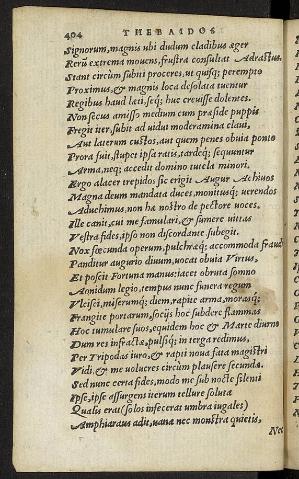 404 THEBAIDOS
Signorum, magnis ubi dudum cladibus æger
Rerū extrema mouens, frustra consultat Adrastus.
Stant circùm subiti proceres, ut quisq; perempto
Proximus, & magnis loca desolata tuentur
Regibus haud læti, seq; huc creuisse dolentes.
Non secus amisso medium cum præside puppis
Fregit iter, subit ad uidui moderamina claui,
Aut laterum custos, aut quem penes obuia ponto
Prora fuit, stupet ipsa ratis, tardeq; sequuntur
Arma, neq; accedit domino tutela minori.
Ergo alacer trepidos sic erigit Augur Achiuos
Magna deum mandata duces, monitusq; uerendos
Aduehimus, non hæ nostro de pectore uoces.
Ille canit, cui me famulari, & sumere uittas
Vestra fides, ipso non discordante subegit.
Nox fœcunda operum, pulchræq; accommoda fraudi
Panditur augurio diuum, uocat obuia Virtus,
Et poscit Fortuna manus: iacet obruta somno
Aonidum legio, tempus nunc funera regum
Vlcisci, miserumq; diem, rapite arma, morasq;
Frangite portarum, socijs hoc subdere flammas
Hoc tumulare suos, equidem hoc & Marte diurno
Dum res infractæ, pulsiq; in terga redimus,
Per Tripodas iuro, & rapti noua fata magistri
Vidi, & me uolucres circùm plausere secundæ.
Sed nunc certa fides, modo me sub nocte silenti
Ipse, ipse assurgens iterum tellure soluta
Qualis erat (solos infecerat umbra iugales)
Amphiaraus adit, uana nec monstra quietis,
Nec